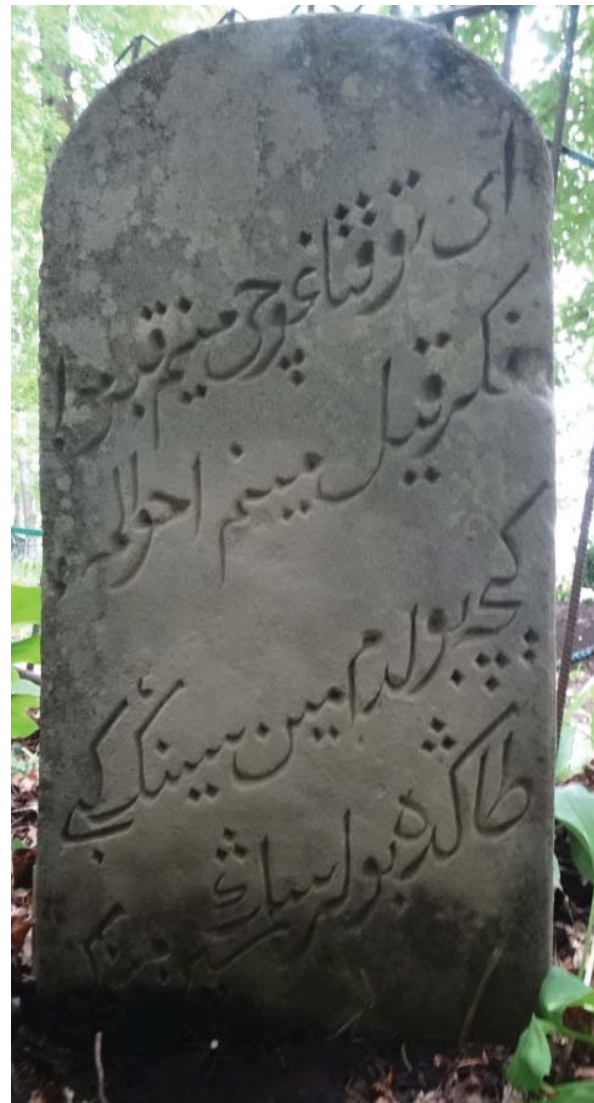 ای توقتاغوچی مینم قبرمدا
فکر قیل مینم احوالمه
کیچه بولدم مین سینک کبی
طاڭده بولرسڭ